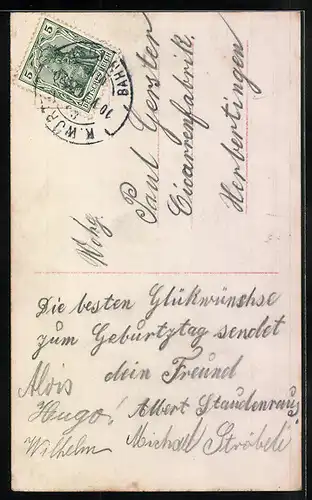 5 5
DEUTSCHES REICH
K. WÜRTT. BAHNP
Wohg.
Paul Gerster
Cicarrenfabrik.
Herbertingen
Die besten Glükwünschse
zum Geburtztag sendet
dein Freund
Alois
Hugo! Albert Staudenraus
Wilhelm Michael Ströbele